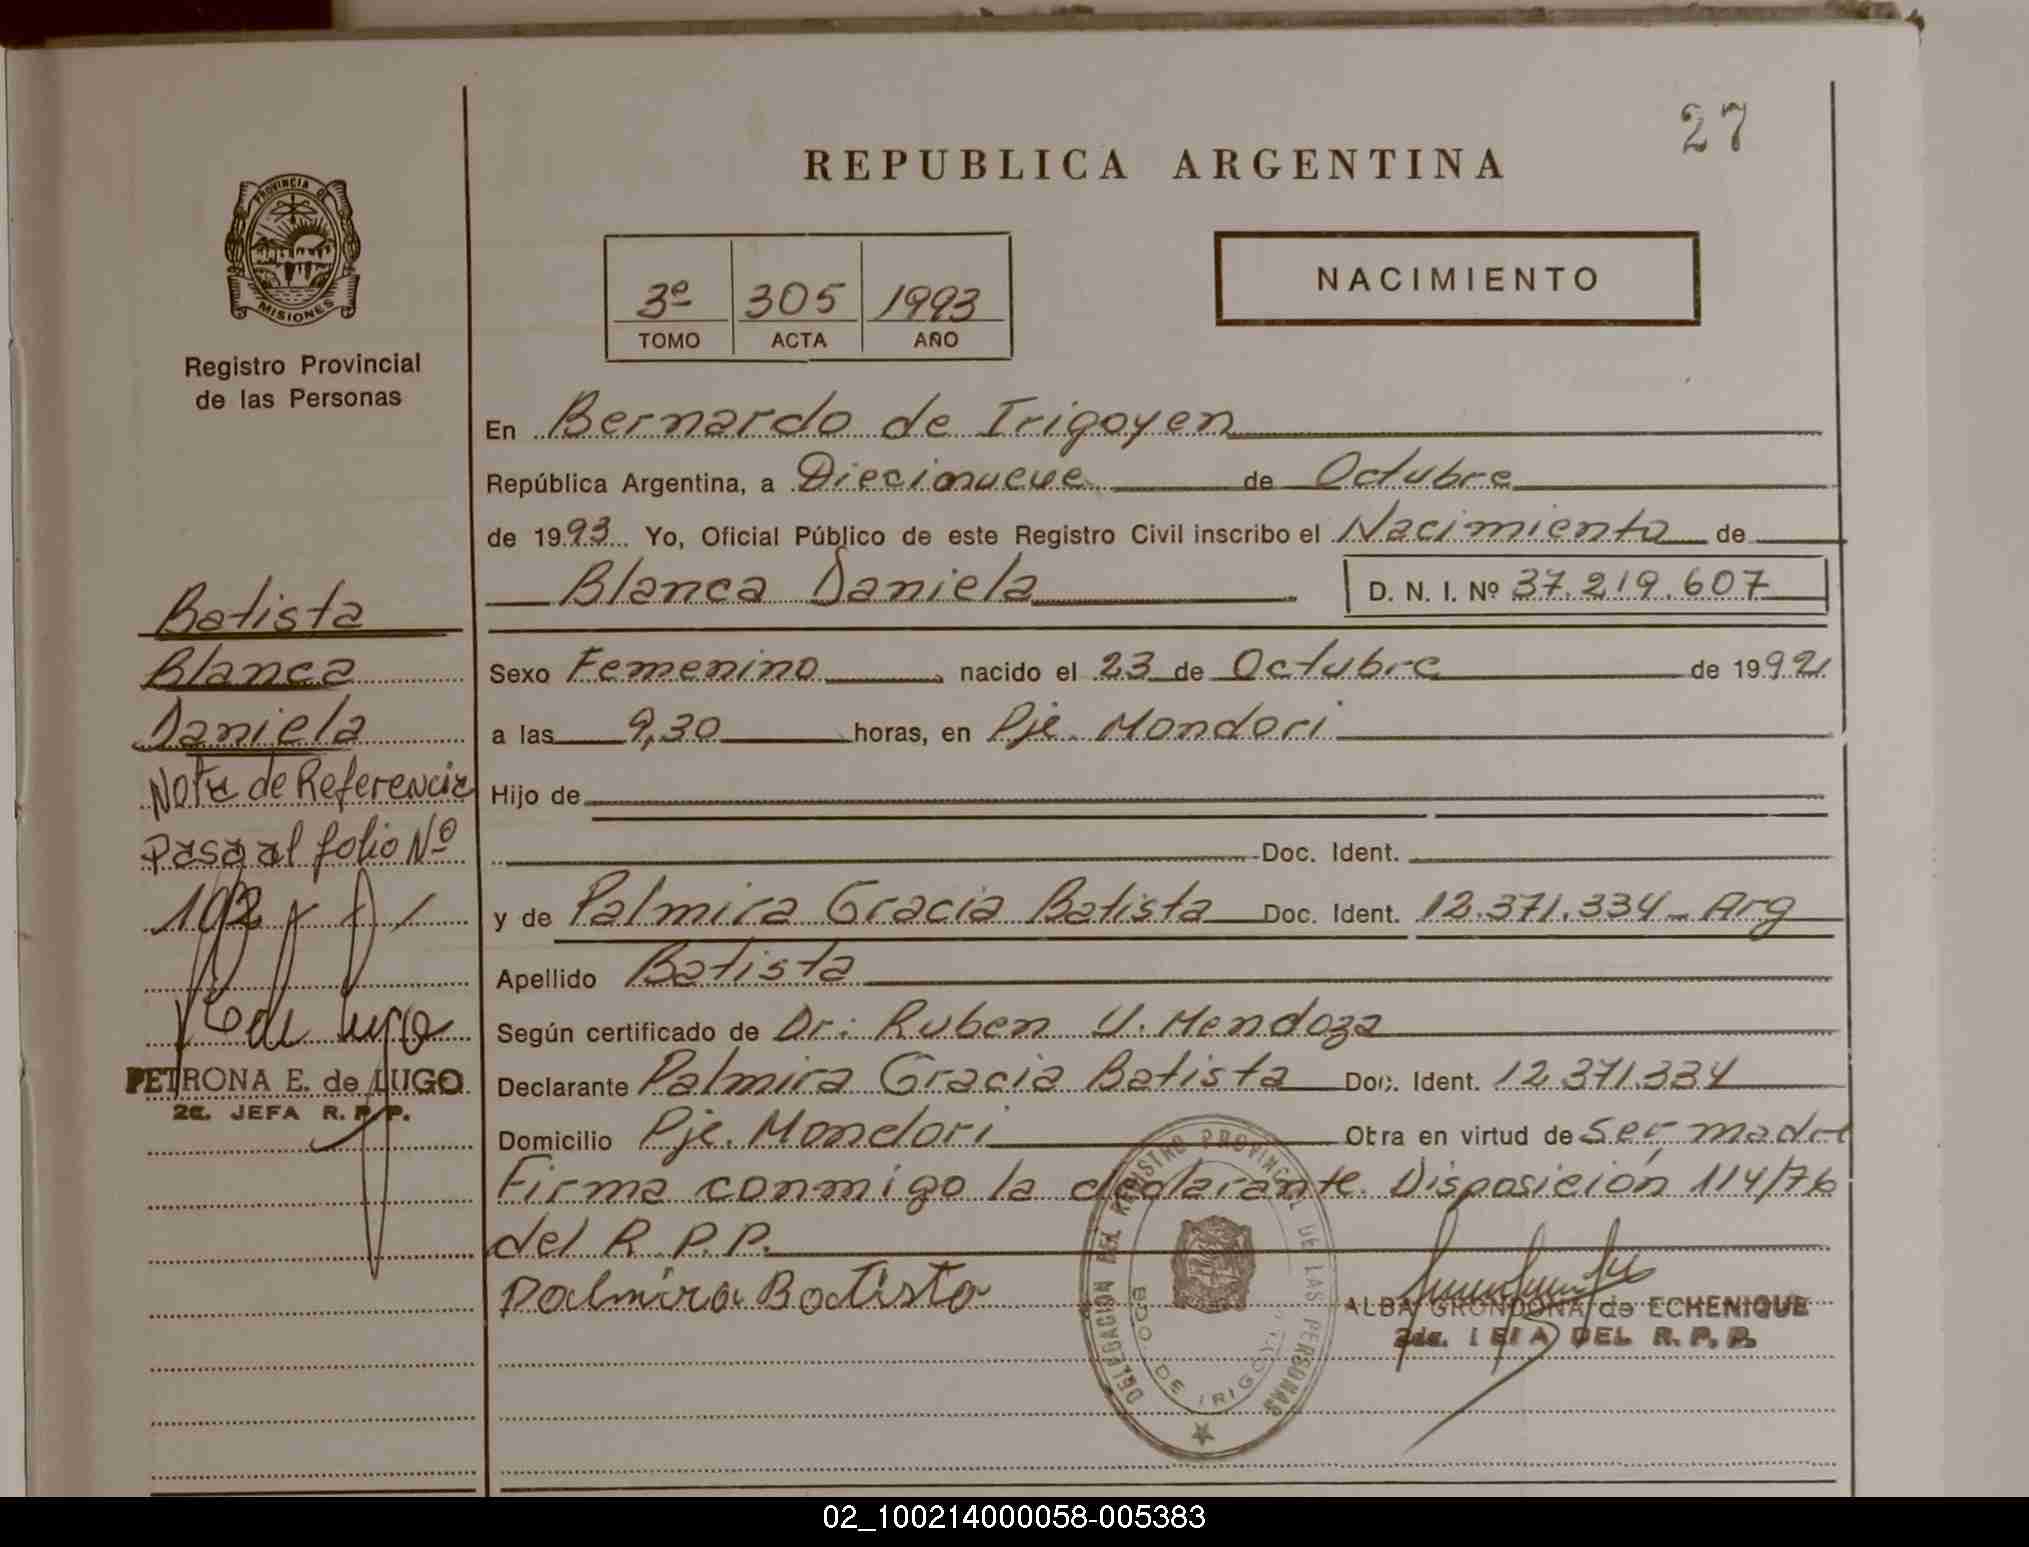 27
REPUBLICA ARGENTINA
PROVINCIA DE
MISIONES
Registro Provincial
de las Personas
3º 305 1993
TOMO ACTA AÑO
NACIMIENTO
En Bernardo de Irigoyen
República Argentina, a Diecinueve de Octubre
de 1993 Yo, Oficial Público de este Registro Civil inscribo el Nacimiento de
Blanca Daniela D. N. I. Nº 37.219.607
Batista
Blanca
Daniela
Nota de Referencia
Pasa al folio Nº
192
PETRONA E. de LUGO
2a. JEFA R. P. P.
Sexo Femenino nacido el 23 de Octubre de 1992
a las 9,30 horas, en Pje. Mondori
Hijo de
Doc. Ident.
y de Palmira Gracia Batista Doc. Ident. 12.371.334 - Arg
Apellido Batista
Según certificado de Dr: Ruben U. Mendoza
Declarante Palmira Gracia Batista Doc. Ident. 12.371.334
Domicilio Pje. Mondori Obra en virtud de ser madre
Firma conmigo la declarante. Disposición 114/76
del R. P. P.
Palmira Batista
DELEGACION DEL REGISTRO PROVINCIAL DE LAS PERSONAS
BDO. DE IRIGOYEN
ALBA GRONDONA de ECHENIQUE
2da. JEFA DEL R. P. P.
02_100214000058-005383